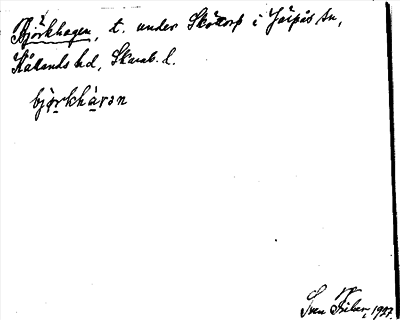 Björkhagen, t. under Skötorp i Järpås sn,
Kållands hd, Skarab. l.
björkhàvən
Sven Friber, 1927.